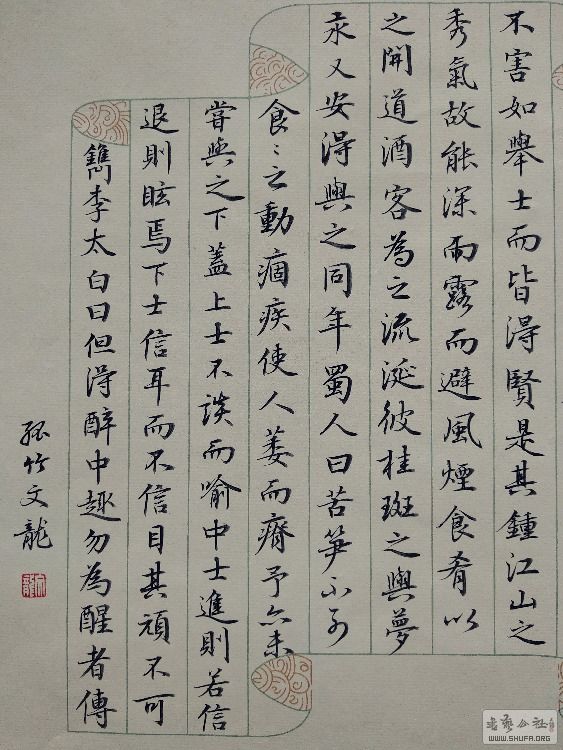 不害如舉士而皆得賢是其鍾江山之
秀氣故能深雨露而避風煙食肴以
之開道酒客為之流涎彼桂斑之與夢
汞又安得與之同年蜀人曰苦笋不可
食〻之動痼疾使人萎而瘠予亦未
嘗與之下蓋上士不談而喻中士進則若信
退則眩焉下士信耳而不信目其頑不可
鐫李太白曰但得醉中趣勿為醒者傳
孤竹文龍
书艺公社
WWW.SHUFA.ORG